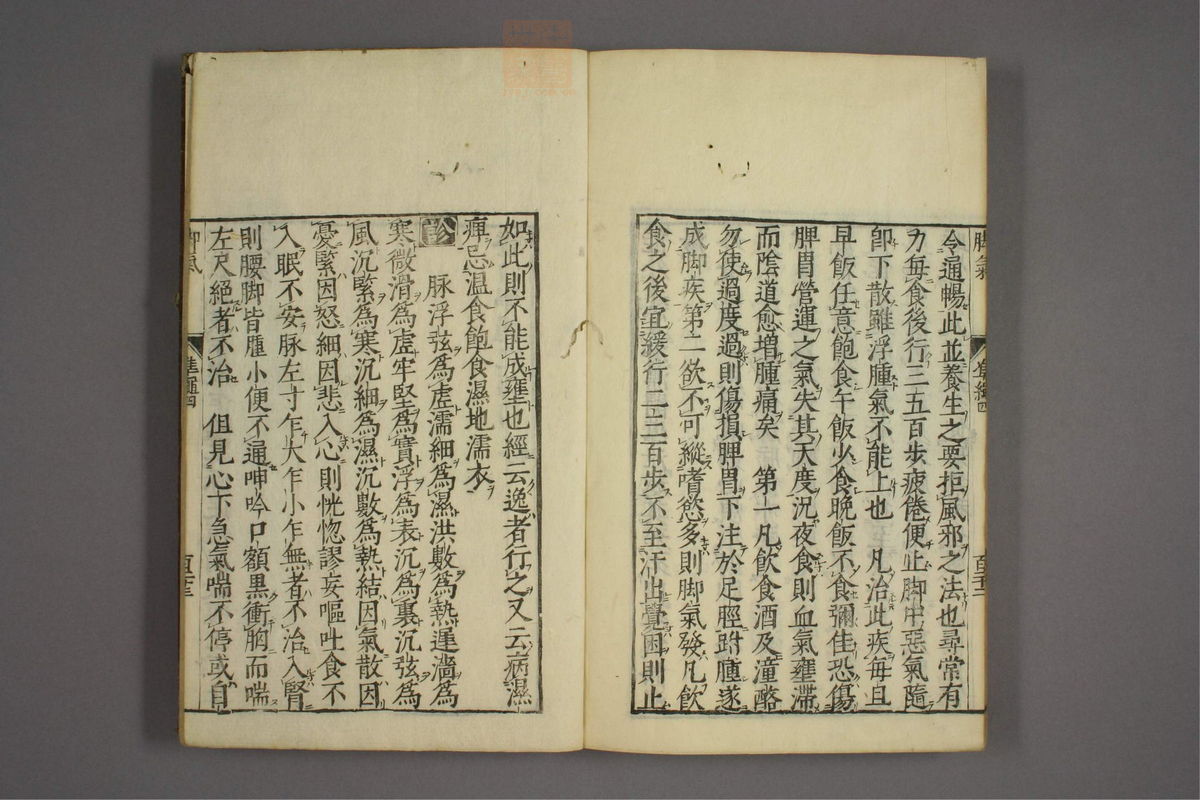 令通暢此並養生之要拒風邪之法也尋常有
力每食後行三五百步疲倦便止脚中惡氣隨
卽下散雖浮腫氣不能上也　凡治此疾每旦
早飯任意飽食午飯少食晚飯不食彌佳恐傷
脾胃營運之氣失其天度況夜食則血氣壅滯
而陰道愈增腫痛矣　第一凡飲食酒及潼酪
勿使過度過則傷損脾胃下注於足脛跗腫遂
成脚疾第二欲不可縱嗜慾多則脚氣發凡飲
食之後宜緩行二三百步不至汗出覺困則止
如此則不能成壅也經云逸者行之又云病濕
痺忌温食飽食濕地濡衣
診　脉浮弦爲虛濡細爲濕洪數爲熱遲濇爲
寒微滑爲虛牢堅爲實浮爲表沉爲裏沉弦爲
風沉緊爲寒沉細爲濕沉數爲熱結因氣散因
憂緊因怒細因悲入心則恍惚謬妄嘔吐食不
入眠不安脉左寸乍大乍小乍無者不治入腎
則腰脚皆腫小便不通呻吟口額黒衝胸而喘
左尺絕者不治　但見心下急氣喘不停或自
脚氣